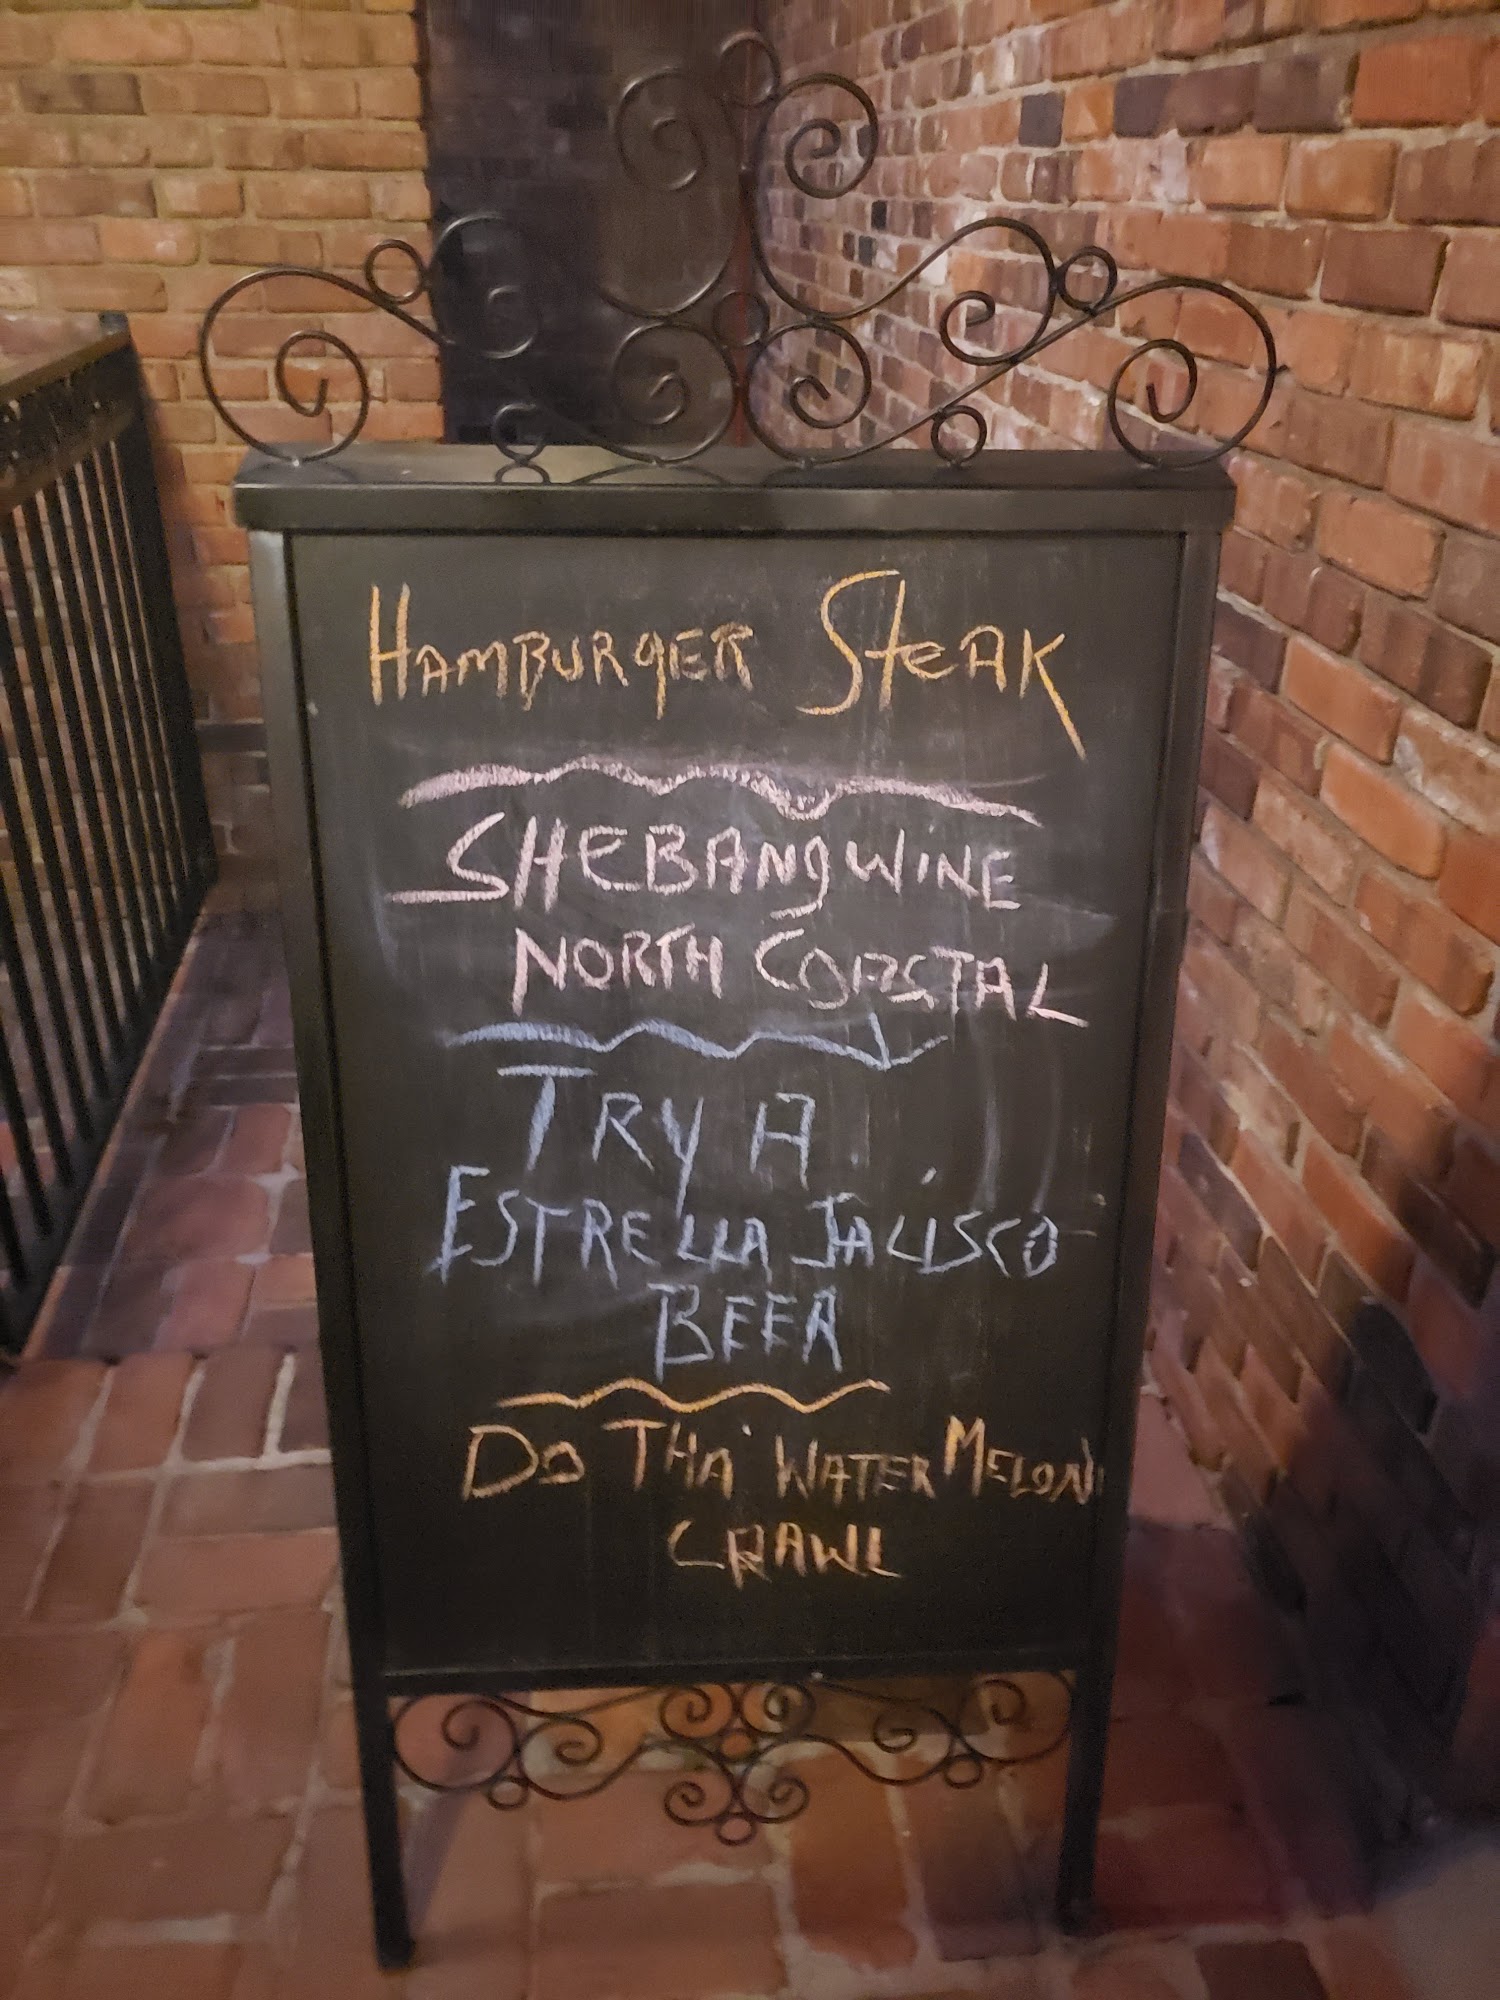 HAMBURGER STEAK
SHEBANG WINE
NORTH COASTAL
TRY A
ESTRELLA JALISCO
BEER
DO THA' WATERMELON
CRAWL